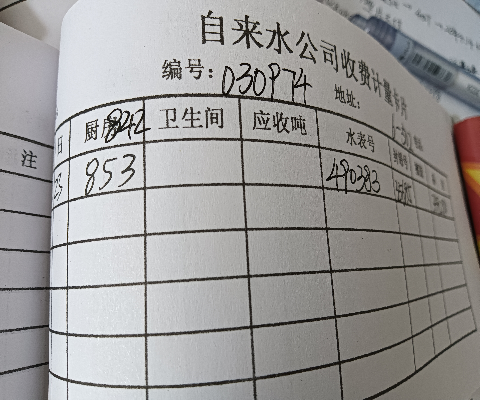 自来水公司收费计量卡片
编号:030974 地址:
注 日 厨房842 卫生间 应收吨 水表号
853 490383